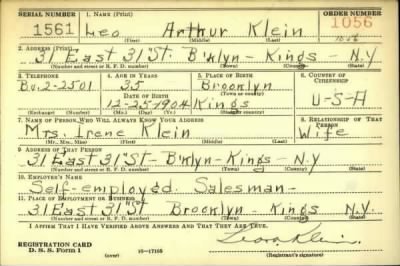 SERIAL NUMBER 1. NAME (Print) ORDER NUMBER
1561 Leo Arthur Klein 1056
(First) (Middle) (Last)
2. ADDRESS (Print)
31 East 31 St. B'klyn - Kings - N.Y
(Number and street or R. F. D. number) (Town) (County) (State)
3. TELEPHONE 4. AGE IN YEARS 5. PLACE OF BIRTH 6. COUNTRY OF CITIZENSHIP
Bu. 2-2501 35 Brooklyn
DATE OF BIRTH
12-25-1904 Kings U-S-A
(Exchange) (Number) (Mo.) (Day) (Yr.) (State or country)
7. NAME OF PERSON WHO WILL ALWAYS KNOW YOUR ADDRESS 8. RELATIONSHIP OF THAT PERSON
Mrs. Irene Klein Wife
(Mr., Mrs., Miss) (First) (Middle) (Last)
9. ADDRESS OF THAT PERSON
31 East 31 St - B'klyn - Kings - N.Y
(Number and street or R. F. D. number) (Town) (County) (State)
10. EMPLOYER'S NAME
Self-employed. Salesman -
11. PLACE OF EMPLOYMENT OR BUSINESS
31 East 31 St Brooklyn - Kings N.Y.
(Number and street or R. F. D. number) (Town) (County) (State)
I AFFIRM THAT I HAVE VERIFIED ABOVE ANSWERS AND THAT THEY ARE TRUE.
REGISTRATION CARD
D. S. S. Form 1 (over) 16-17105